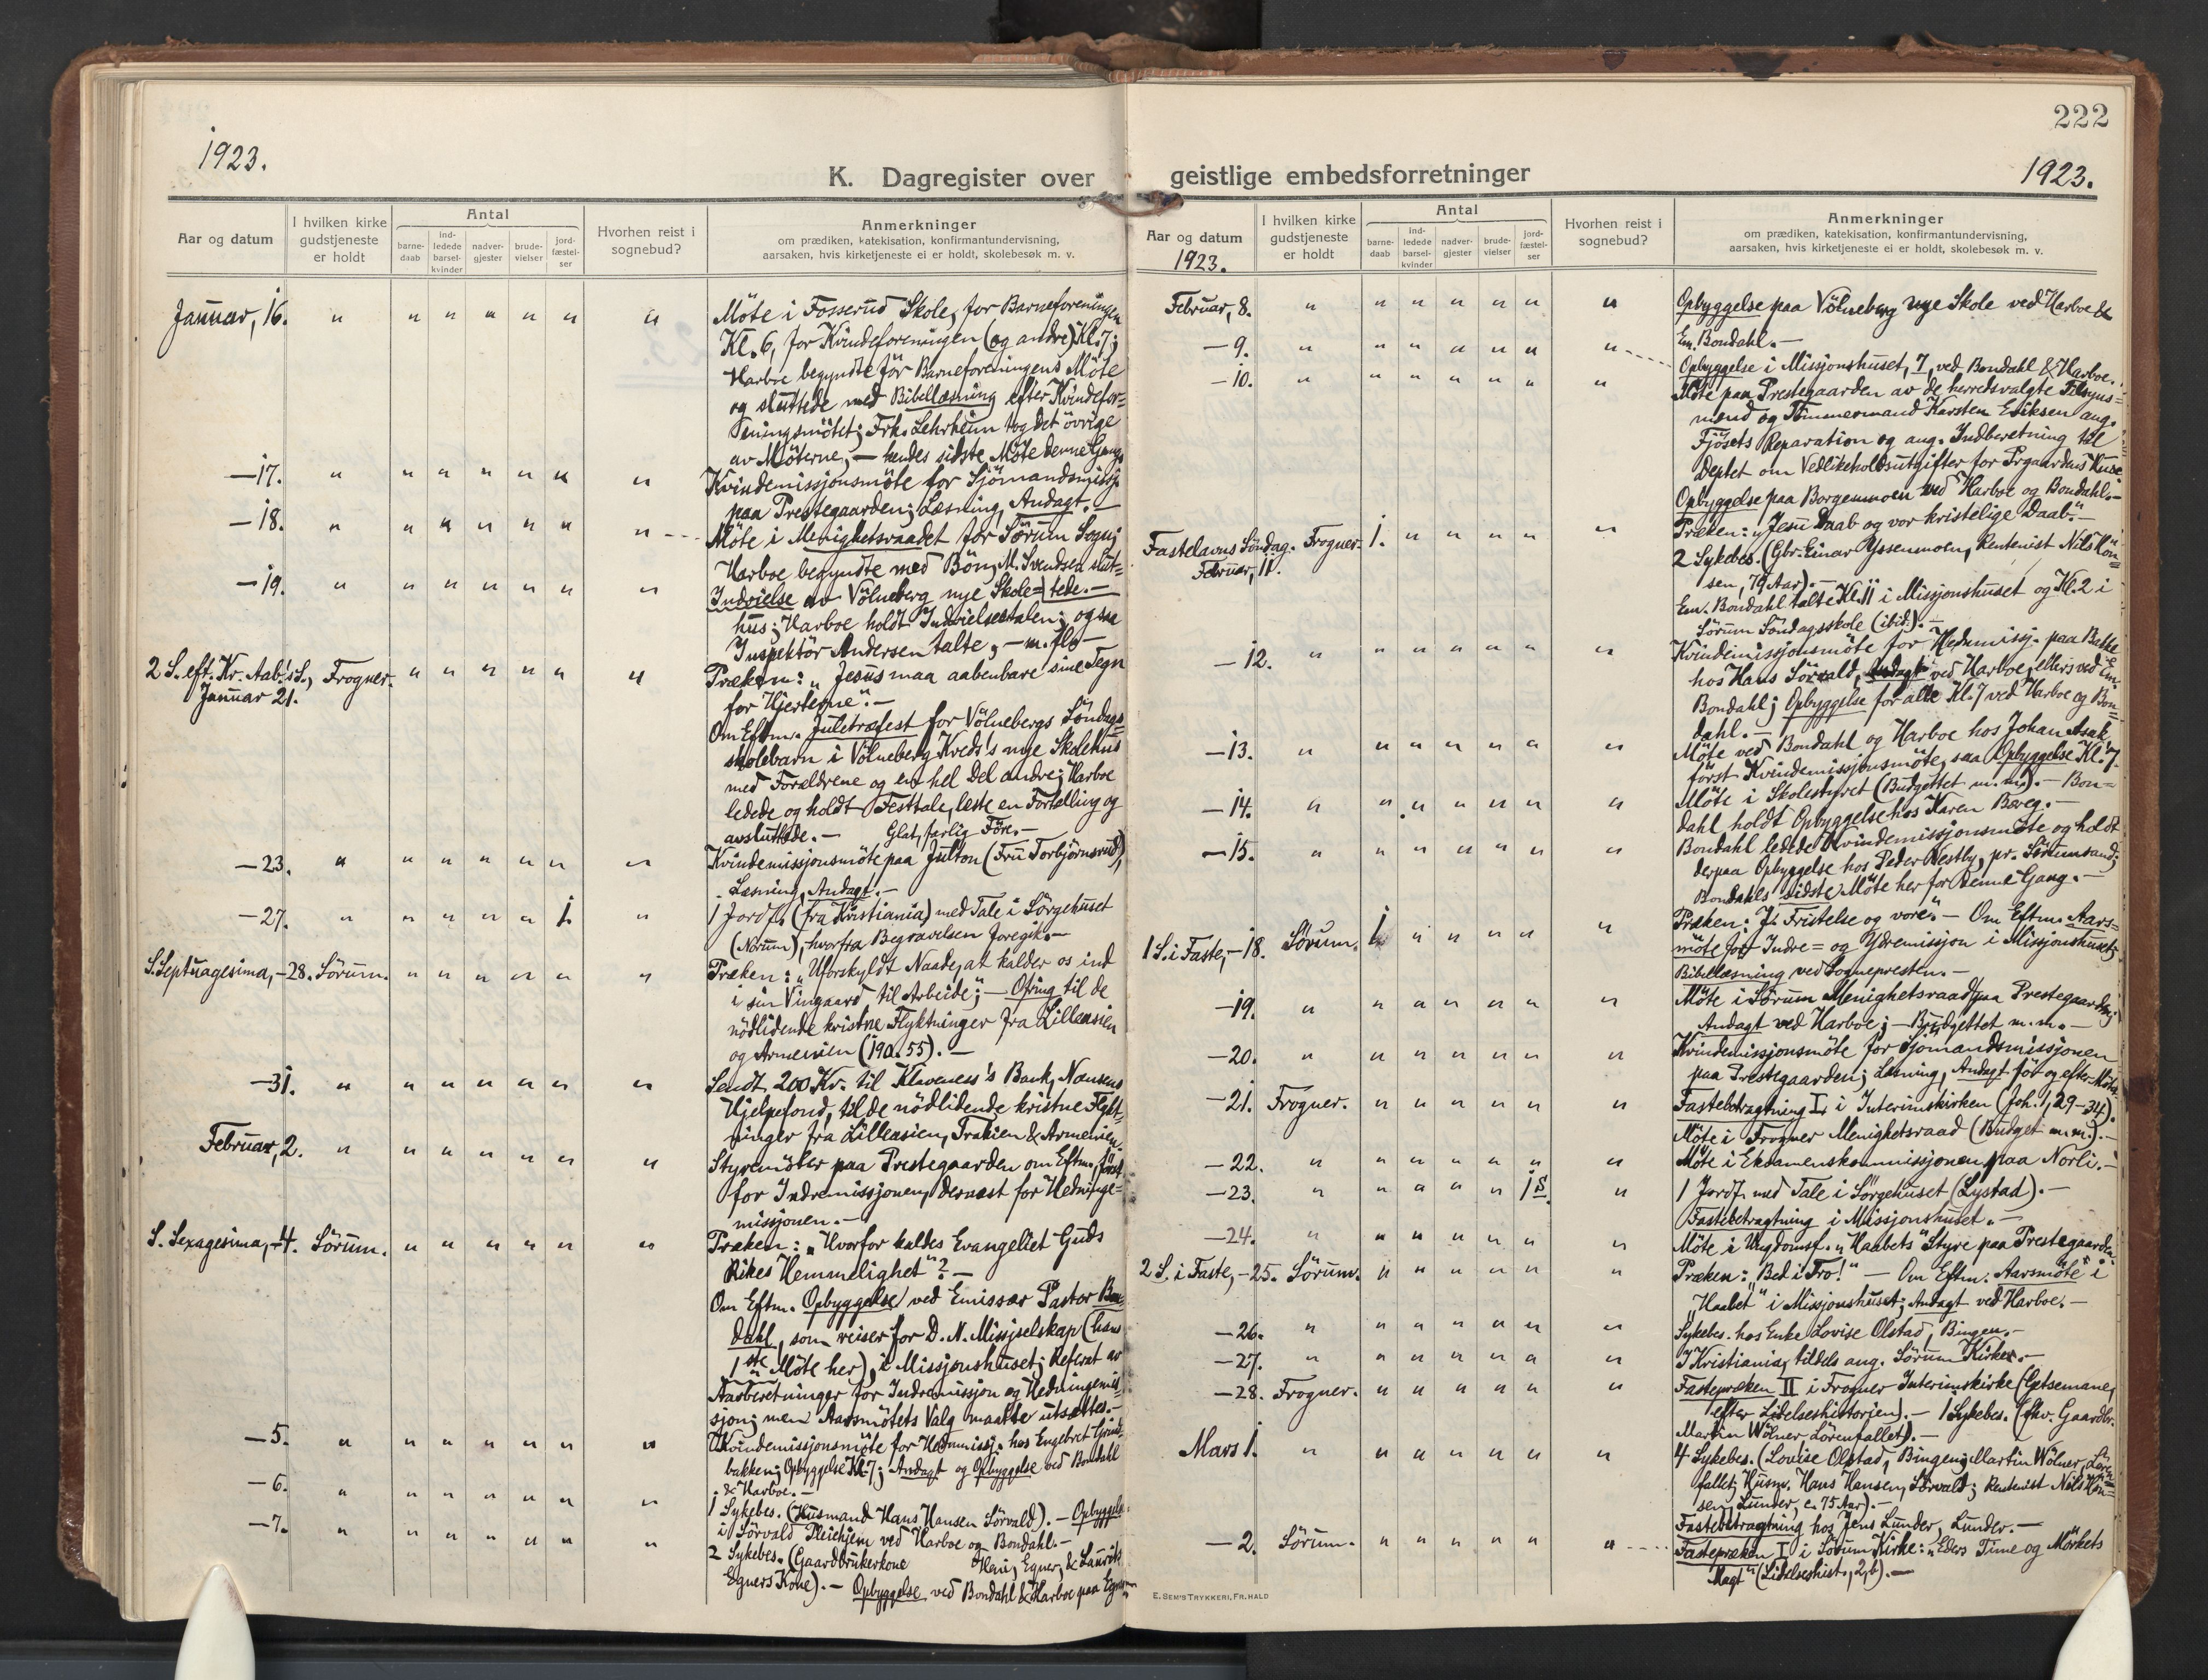 1923.
K. Dagregister over
Aar og datum
I hvilken kirke gudstjeneste er holdt
Antal
barne-daab
ind-ledede barsel-kvinder
nadver-gjester
brude-vielser
jord-fæstel-ser
Hvorhen reist i sognebud?
Anmerkninger
om prædiken, katekisation, konfirmantundervisning,
aarsaken, hvis kirketjeneste ei er holdt, skolebesøk m. v.
Januar, 16. " " " " " " " Möte i Fosserud Skole, for Barneforeningen
Kl. 6, for Kvindeforeningen (og andre) Kl. 7;
Harboe begyndte för Barneforeningens Möte
og sluttede med Bibellæsning efter Kvindefor=
eningsmötet; Frk. Lehrheim tog det övrige
av Möterne, — hendes sidste Möte denne Gang.
—17. " " " " " " " Kvindemissjonsmöte for Sjömandsmissj.
paa Prestegaarden; Læsning, Andagt. —
—18. " " " " " " " Möte i Menighetsraadet for Sörum Sogn;
Harboe begyndte med Bön; M. Svendsen slut=
tede. —
—19. " " " " " " " Indvielse av Völneberg nye Skole=
hus; Harboe holdt Indvielsestalen; ogsaa
Inspektör Andersen talte, — m. fl. —
2 S. eft. Kr. Aab's S., Frogner. " " " " " " Præken: „Jesus maa aabenbare sine Tegn
Januar 21. for Hjerterne". —
Om Eftm. Juletræfest for Völnebergs Söndags=
skolebarn i Völneberg Kreds's nye Skolehus
med Forældrene og en hel Del andre; Harboe
ledede og holdt Festtale, læste en Fortelling og
avsluttede. — Glat, farlig Före. —
—23. " " " " " " " Kvindemissjonsmöte paa Julton (Fru Torbjörnsrud),
Læsning, Andagt. —
—27. " " " " " 1. " 1 Jordf. (fra Kristiania) med Tale i Sörgehuset
(Norum), hvorfra Begravelsen foregik. —
S. Septuagesima, —28. Sörum. " " " " " " Præken: „Uforskyldt Naade, at kalder os ind
i sin Vingaard til Arbeide"; — Ofring til de
nödlidende kristne Flyktninger fra Lilleasien
og Armenien (190.55). —
—31. " " " " " " " Sendt 200 Kr. til Klaveness's Bank, Nansens
Hjelpefond, til de nödlidende kristne Flykt=
ninger fra Lilleasien, Trakien & Armenien.
Februar, 2. " " " " " " " Styremöter paa Prestegaarden om Eftm., först
for Indremissjonen, dernæst for Hedninge=
missjonen. —
S. Sexagesima, —4. Sörum. " " " " " " Præken: „Hvorfor kaldes Evangeliet Guds
Rikes Hemmelighet"? —
Om Eftm. Opbyggelse ved Emissær Pastor Bon=
dahl, som reiser for D. N. Missjselskap (hans
1ste Möte her), i Missjonshuset; Referat av
Aarsberetninger for Indremissjon og Hedningemis=
sjon; men Aarsmötets Valg maatte utsættes. —
—5. " " " " " " " Kvindemissjonsmöte for Hedmissj. hos Engebret
bakken; Opbyggelse Kl. 7; Andagt og Opbyggelse ved Bondahl
& Harboe. —
—6. " " " " " " " 1 Sykebes. (Husmand Hans Hansen Sörvald). — Opbyggelse
i Sörvald Pleiehjem ved Harboe og Bondahl. —
—7. " " " " " " " 2 Sykebes. (Gaardbrukerkone Egner, & Laurits
Egners Kone). — Opbyggelse ved Bondahl & Harboe paa Egner.
222
geistlige embedsforretninger
1923.
Aar og datum
1923.
I hvilken kirke gudstjeneste er holdt
Antal
barne-daab
ind-ledede barsel-kvinder
nadver-gjester
brude-vielser
jord-fæstel-ser
Hvorhen reist i sognebud?
Anmerkninger
om prædiken, katekisation, konfirmantundervisning,
aarsaken, hvis kirketjeneste ei er holdt, skolebesøk m. v.
Februar, 8. " " " " " " " Opbyggelse paa Völneberg nye Skole ved Harboe &
Em. Bondahl. —
—9. " " " " " " " Opbyggelse i Missjonshuset, 7, ved Bondahl & Harboe.
—10. " " " " " " " Möte paa Prestegaarden av de herredsvalgte Tilsyns=
mænd og Tömmermand Karsten Eriksen ang.
Fjösets Reparation og ang. Indberetning til
Deptet om Vedlikeholdsutgifter for Prgaardens Huse.
Opbyggelse paa Borgenmoen ved Harboe og Bondahl. —
Fastelavns Söndag. Frogner. 1. " " " " " Præken: „Jesu Daab og vor kristelige Daab". —
Februar, 11. 2 Sykebes. (Gbr. Einar Yssenmoen, Rentenist Nils Hön=
sen, 79 Aar). —
Em. Bondahl talte Kl. 11 i Missjonshuset og Kl. 2 i
Sörum Söndagsskole (ibid.). —
—12. " " " " " " " Kvindemissjonsmöte for Hedmissj. paa Bakke
hos Hans Sörvald, Andagt ved Harboe, ellers ved Em.
Bondahl; Opbyggelse for alle Kl. 7 ved Harboe og Bon=
dahl. —
—13. " " " " " " " Möte ved Bondahl og Harboe hos Johan Asak,
först Kvindemissjonsmöte, saa Opbyggelse Kl. 7.
—14. " " " " " " " Möte i Skolestyret (Budgettet m. m.). — Bon=
dahl holdt Opbyggelse hos Karen Bæreg. —
—15. " " " " " " " Bondahl ledede Kvindemissjonsmöte og holdt
derpaa Opbyggelse hos Peder Westby, pr. Sörumsand;
Bondahls sidste Möte her for denne Gang. —
1 S. i Faste, —18. Sörum. 1. " " " " " Præken: „J. Fristelse og vore". — Om Eftm. Aars=
möte for Indre= og Ydremissjon i Missjonshuset;
Bibellæsning ved Sognepresten. —
—19. " " " " " " " Möte i Sörum Menighetsraad paa Prestegaarden;
Andagt ved Harboe; — Budgettet m. m. —
—20. " " " " " " " Kvindemissjonsmöte for Sjömandsmissjonen
paa Prestegaarden; Læsning, Andagt för og efter Mötet.
—21. Frogner. " " " " " " Fastebetragtning I, i Interimskirken (Joh. 1, 29-34).
Möte i Frogner Menighetsraad (Budget m.m.). —
—22. " " " " " " " Möte i Eksamenskommissjonen paa Norli. —
—23. " " " " " 1 S. " 1 Jordf. med Tale i Sörgehuset (Lystad). —
Fastebetragtning i Missjonshuset. —
—24. " " " " " " " Möte i Ungdomsf. „Haabets" Styre paa Prestegaarden.
2 S. i Faste, —25. Sörum. " " " " " " Præken: „Bed i Tro!" — Om Eftm. Aarsmöte i
„Haabet" i Missjonshuset; Andagt ved Harboe. —
—26. " " " " " " " Sykebes. hos Enke Lovise Olstad, Bingen. —
—27. " " " " " " " I Kristiania, tildels ang. Sörum Kirker. —
—28. Frogner. " " " " " " Fastepræken II i Frogner Interimskirke (Getsemane,
efter Lidelseshistorjen). — 1 Sykebes. (fhv. Gaardbr.
Martin Wölner Lörenfallet). —
Mars 1. " " " " " " " 4 Sykebes. (Lovise Olstad, Bingen; Martin Wölner, Lören=
fallet; Husm. Hans Hansen, Sörvald; Rentenist Nils Hön=
sen, Lunder, c. 75 Aar). —
Fastebetragtning hos Jens Lunder, Lunder. —
—2. Sörum. " " " " " " Fastepræken I i Sörum Kirke: „Eders Time og Mörkets
Magt" (Lidelseshist., 2, b). —
E. SEM'S TRYKKERI, FR.HALD